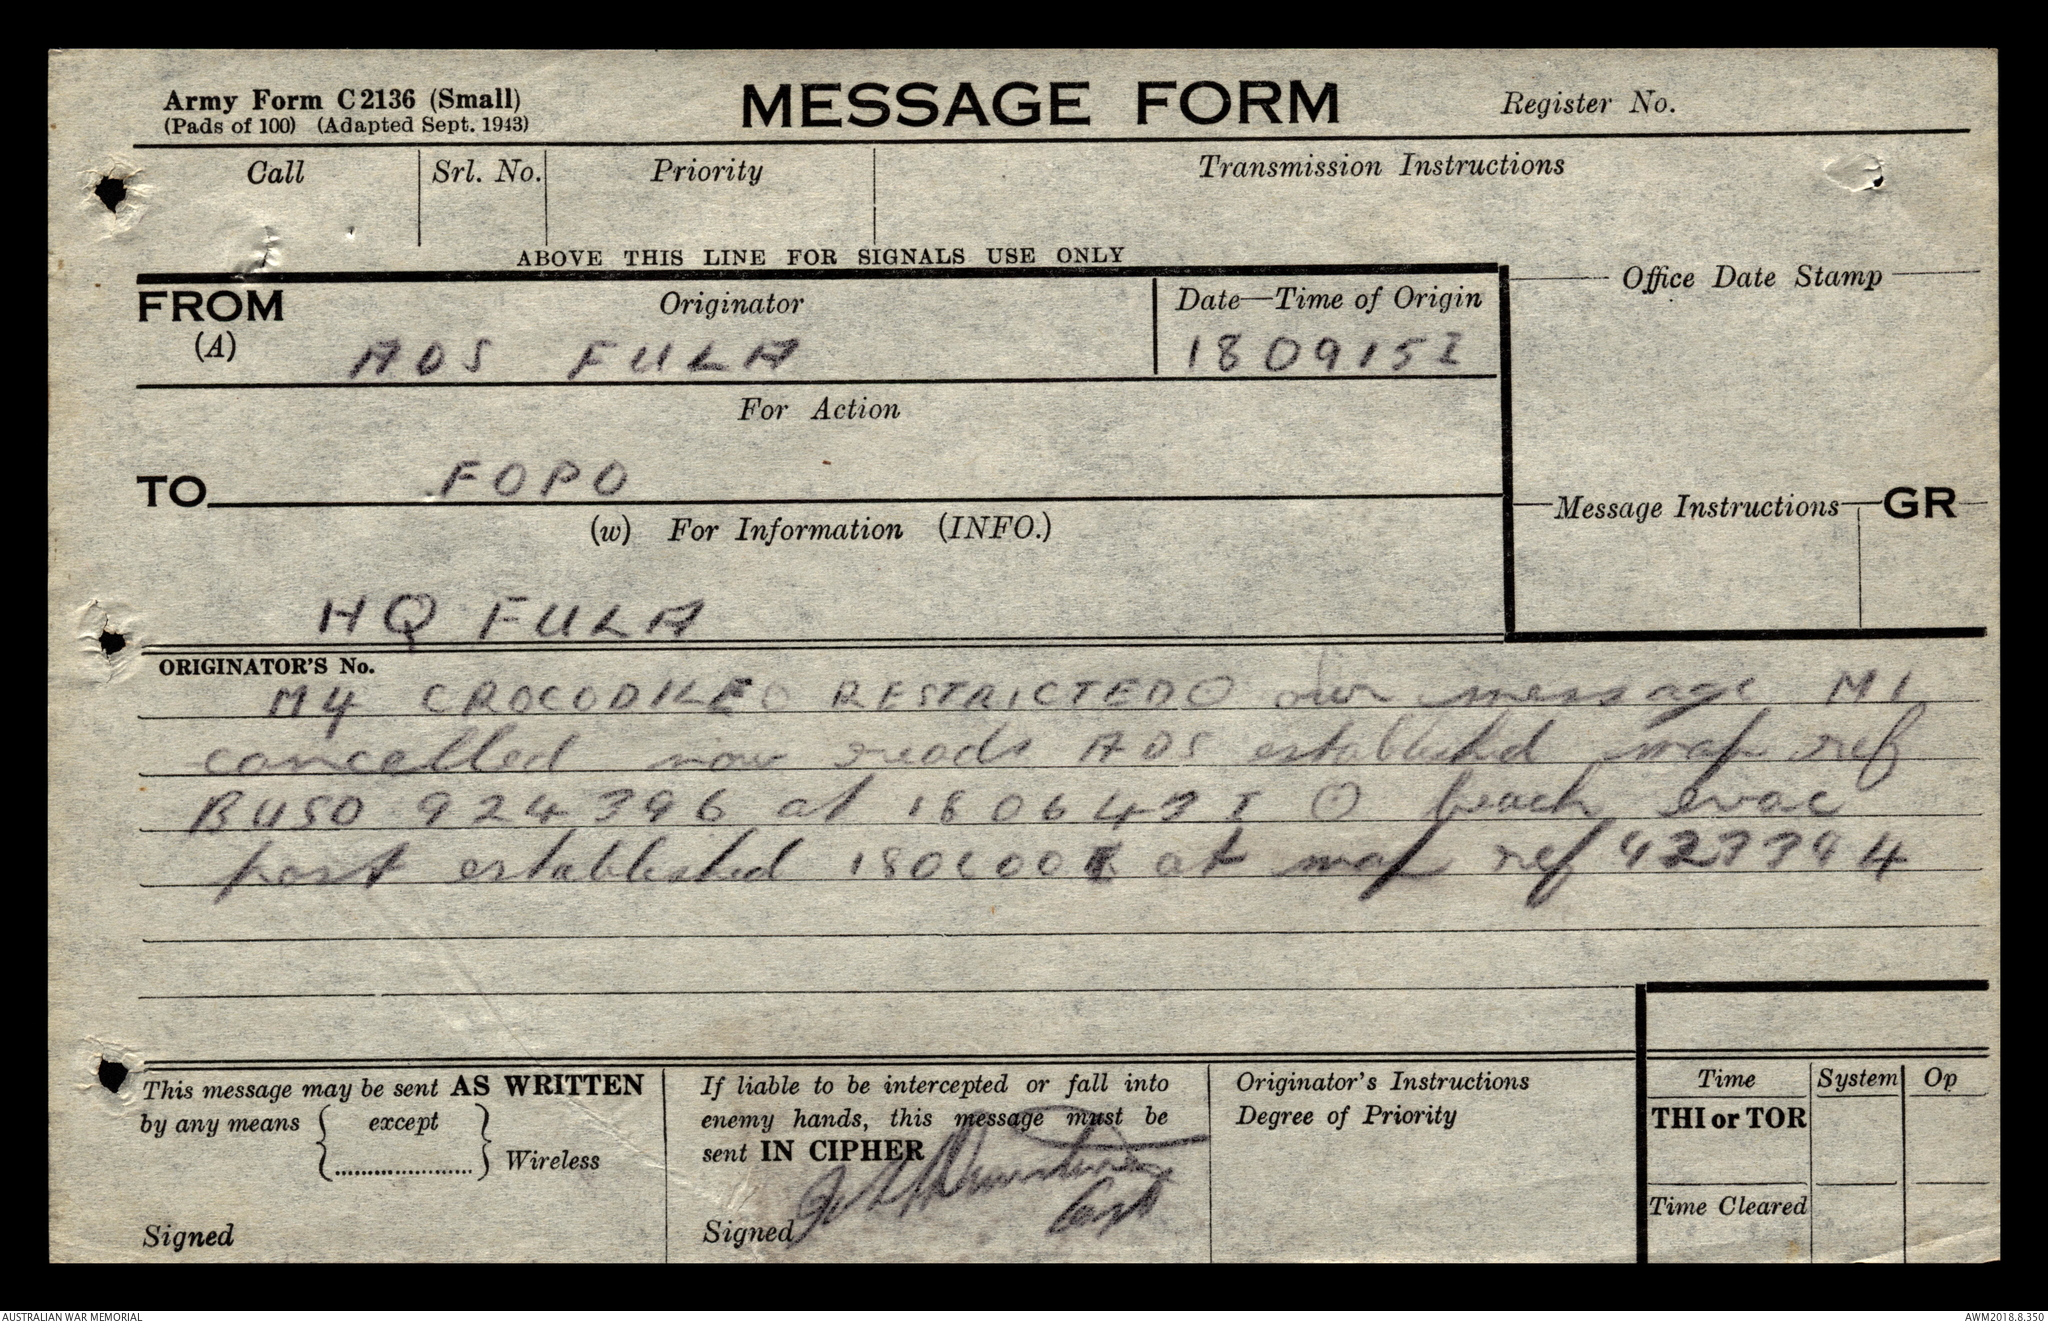 Army Form C2136 (Small)
(Pads of 100) (Adapted Sept. 1943)
MESSAGE FORM
Register No.
Call
Srl. No.
Priority
Transmission Instructions
ABOVE THIS LINE FOR SIGNALS USE ONLY
FROM
(A)
Originator
ADS FULA
Date—Time of Origin
180915I
Office Date Stamp
For Action
TO
FOPO
(w) For Information (INFO.)
HQ FULA
Message Instructions
GR
ORIGINATOR'S No.
M4 CROCODILE O RESTRICTED O our message M1
cancelled now reads ADS established map ref
BUSO 924396 at I O beach evac
post established at map ref
This message may be sent AS WRITTEN
by any means { except
..................... } Wireless
Signed
If liable to be intercepted or fall into
enemy hands, this message must be
sent IN CIPHER
Signed
Capt
Originator's Instructions
Degree of Priority
Time
System
Op
THI or TOR
Time Cleared
AUSTRALIAN WAR MEMORIAL
AWM2018.8.350